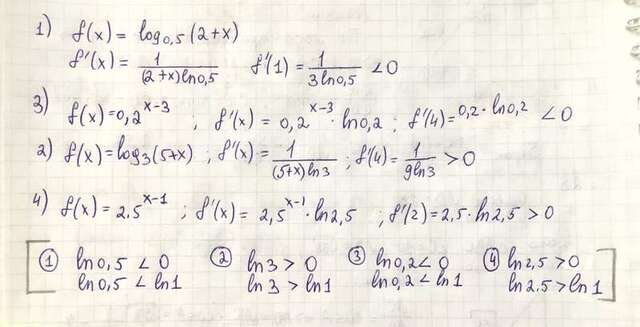 1) f(x) = log₀,₅(2+x)
f'(x) = 1/((2+x)ln0,5) f'(1) = 1/(3ln0,5) < 0
3) f(x)=0,2^(x-3) ; f'(x) = 0,2^(x-3) · ln0,2 ; f'(4)=0,2·ln0,2 < 0
2) f(x)=log₃(5+x) ; f'(x) = 1/((5+x)ln3) ; f'(4) = 1/(9ln3) > 0
4) f(x) = 2,5^(x-1) ; f'(x) = 2,5^(x-1) · ln2,5 ; f'(2) = 2,5·ln2,5 > 0
① ln0,5 < 0 ② ln3 > 0 ③ ln0,2 < 0 ④ ln2,5 > 0
ln0,5 < ln1 ln3 > ln1 ln0,2 < ln1 ln2.5 > ln1